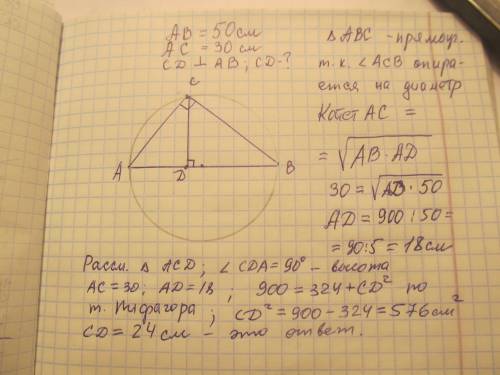 AB = 50 см
AC = 30 см
CD ⊥ AB; CD-?
C
A
D
B
△ ABC - прямоуг.
т.к. ∠ACB опира-
ется на диаметр
Катет AC =
= √AB·AD
30 = √AD·50
AD = 900 : 50 =
= 90:5 = 18 см
Рассм. △ ACD; ∠ CDA = 90° - высота
AC = 30; AD = 18; 900 = 324 + CD² по
т. Пифагора; CD² = 900 - 324 = 576 см²
CD = 24 см - это ответ.